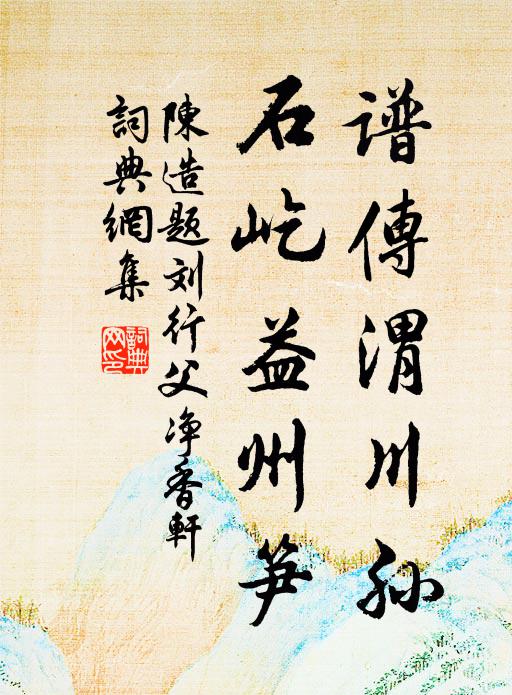 谱傳渭川孙
石屹益州笋
陳造题刘行父净香軒
詞典網集
詞典
网印